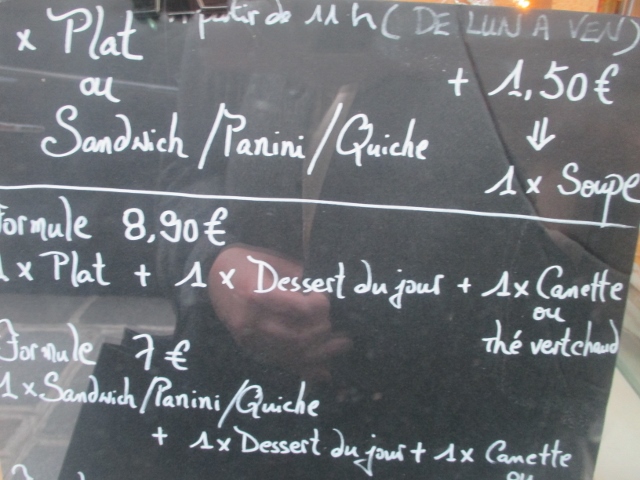 partir de 11h (DE LUN A VEN)
x Plat
ou
+ 1,50€
Sandwich/Panini/Quiche
⇓
1 x Soupe
Formule 8,90€
1 x Plat + 1 x Dessert du jour + 1x Canette
ou
thé vert chaud
Formule 7€
1 x Sandwich/Panini/Quiche
+ 1x Dessert du jour + 1x Canette
ou